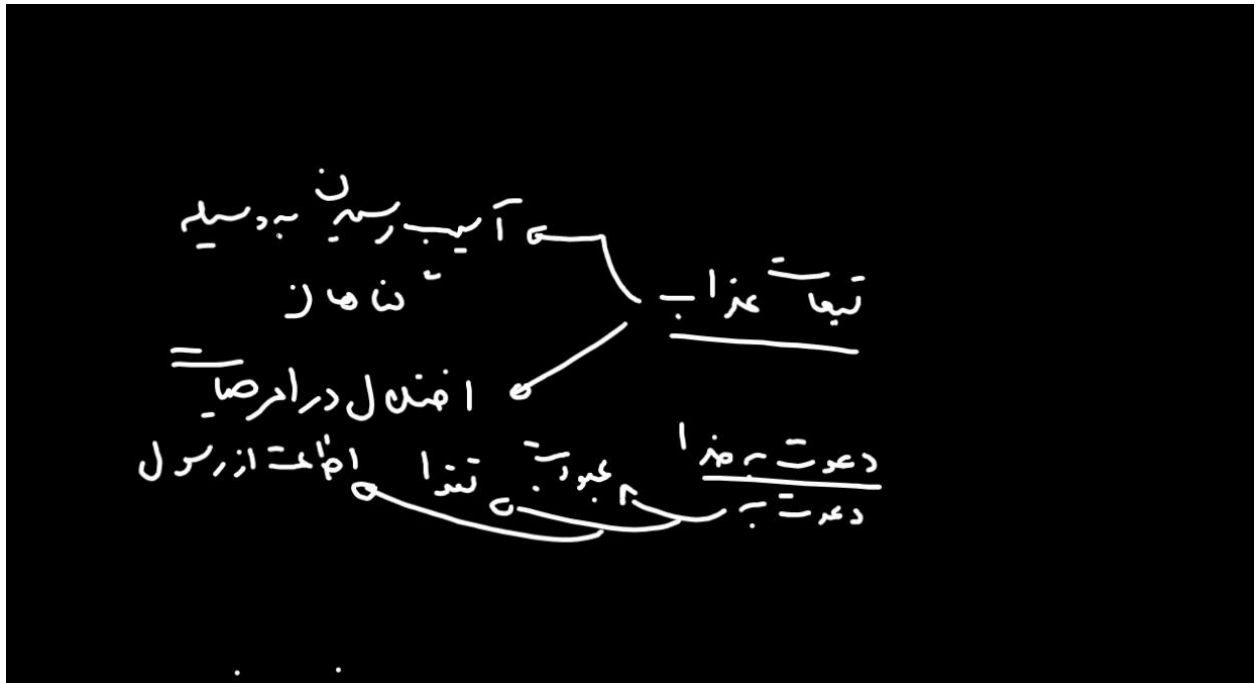 تبعات عذاب
آسیب رسیدن به وسیله
اختلال در امر
دعوت به خدا
دعوت به عبودیت تقوا اطاعت از رسول